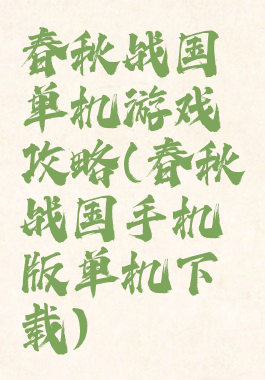 春秋战国
单机游戏
攻略(春秋
战国手机
版单机下
载)